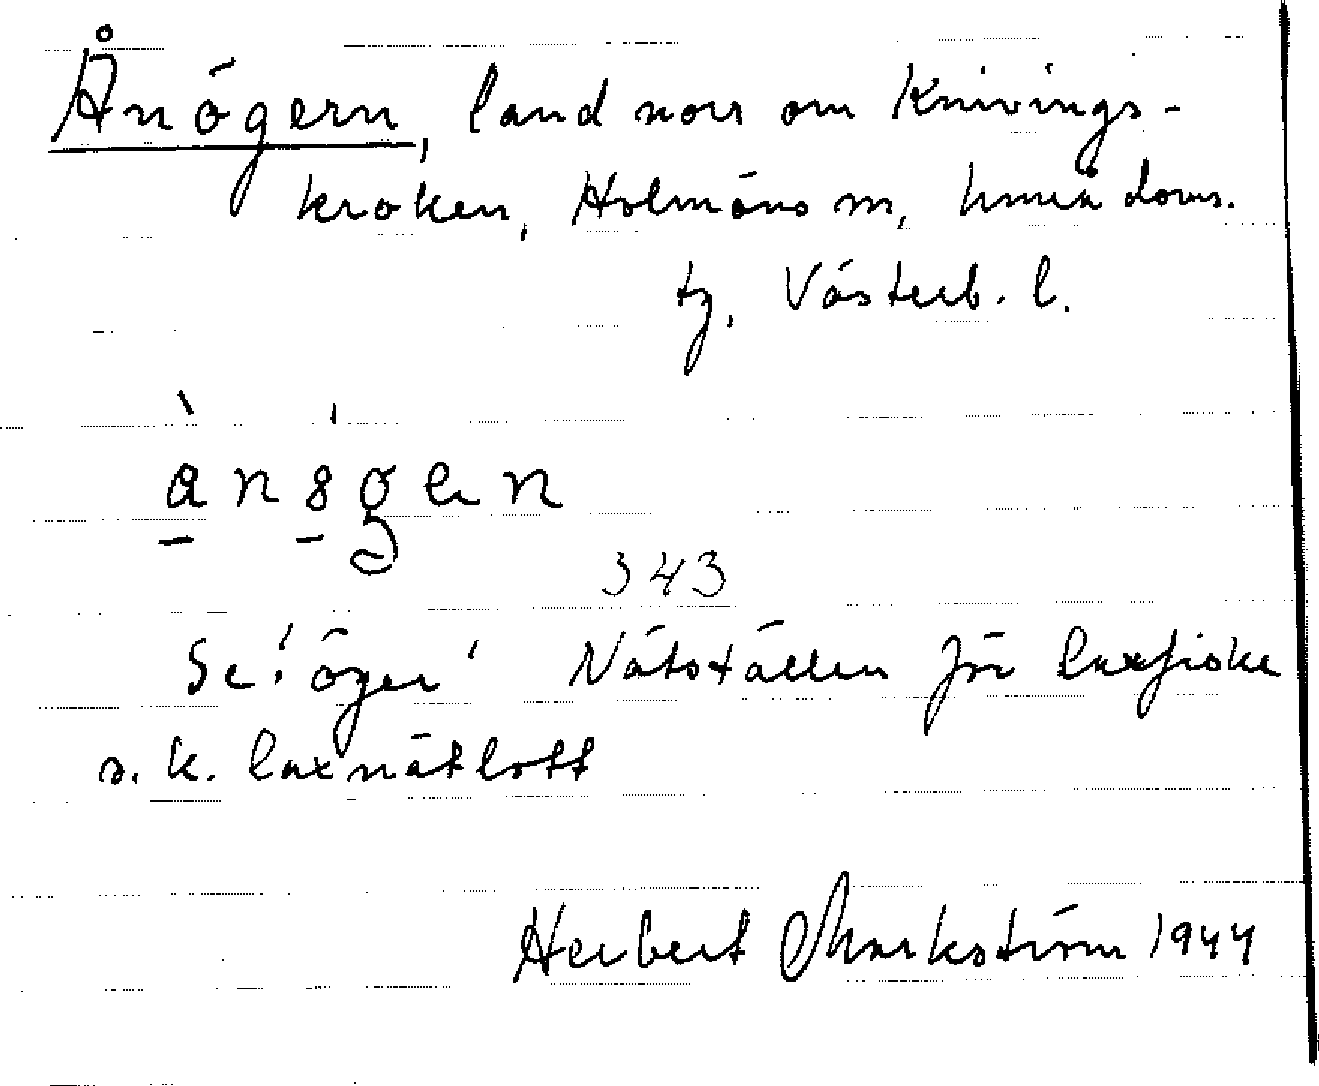 Ånögern, land norr om Knivings-
kroken, Holmöns sn, Umeå doms.
tg, Västerb. l.
ànögen
343
Se 'öger' Nätställen för laxfiske
s.k. laxnätlott
Herbert Markström 1944